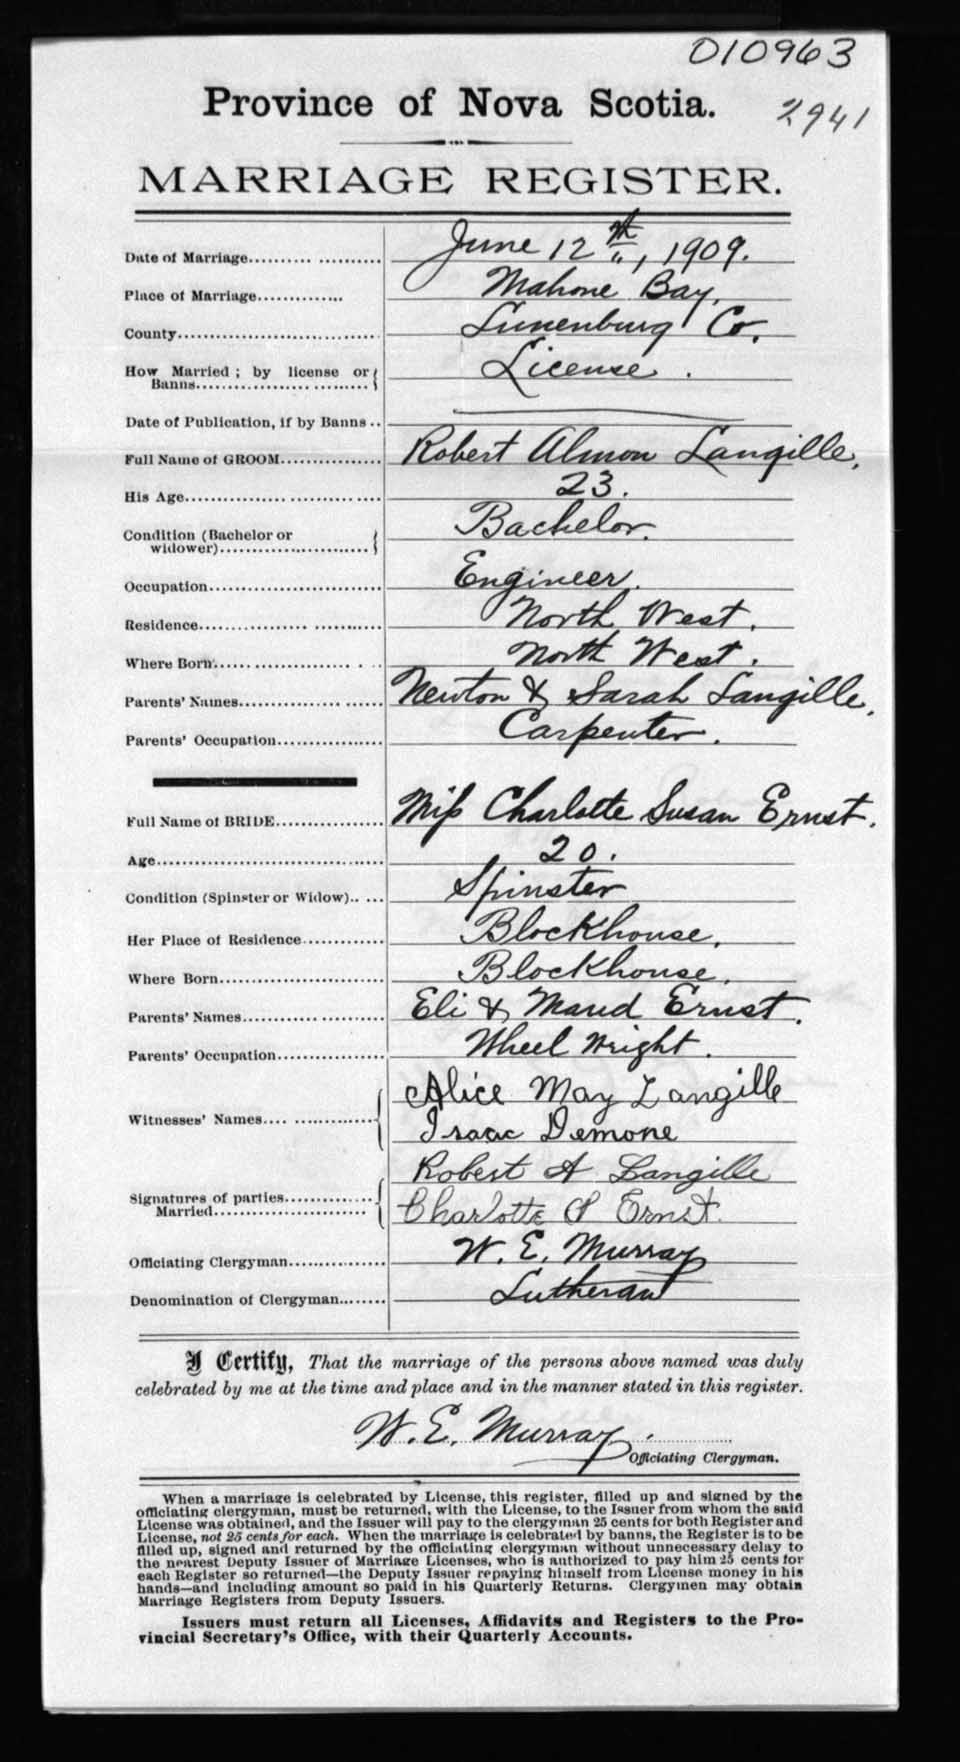 010963
Province of Nova Scotia.
2941
MARRIAGE REGISTER.
Date of Marriage.......... .......... June 12th, 1909.
Place of Marriage............. Mahone Bay,
County.............................. Lunenburg Co.
How Married ; by license or Banns.................. .......... License .
Date of Publication, if by Banns ..
Full Name of GROOM............... Robert Almon Langille,
His Age................... ........... 23.
Condition (Bachelor or widower)......................... Bachelor.
Occupation......................... Engineer.
Residence................ .......... North West.
Where Born....... .............. . .. North West.
Parents' Names................ ...... Newton & Sarah Langille,
Parents' Occupation................ Carpenter.
Full Name of BRIDE................ Miss Charlotte Susan Ernst.
Age................................... 20.
Condition (Spinster or Widow).. ... Spinster
Her Place of Residence............ Blockhouse,
Where Born........................ Blockhouse,
Parents' Names............. ........ Eli & Maud Ernst.
Parents' Occupation................ Wheel Wright.
Witnesses' Names.... .............. Alice May Langille
Isaac Demone
Robert A Langille
Signatures of parties............. Married....................... Charlotte S Ernst.
Officiating Clergyman............. W. E. Murray
Denomination of Clergyman........ Lutheran
I Certify, That the marriage of the persons above named was duly
celebrated by me at the time and place and in the manner stated in this register.
W. E. Murray
Officiating Clergyman.
When a marriage is celebrated by License, this register, filled up and signed by the
officiating clergyman, must be returned, with the License, to the Issuer from whom the said
License was obtained, and the Issuer will pay to the clergyman 25 cents for both Register and
License, not 25 cents for each. When the marriage is celebrated by banns, the Register is to be
filled up, signed and returned by the officiating clergyman without unnecessary delay to
the nearest Deputy Issuer of Marriage Licenses, who is authorized to pay him 25 cents for
each Register so returned—the Deputy Issuer repaying himself from License money in his
hands—and including amount so paid in his Quarterly Returns. Clergymen may obtain
Marriage Registers from Deputy Issuers.
Issuers must return all Licenses, Affidavits and Registers to the Pro-
vincial Secretary's Office, with their Quarterly Accounts.